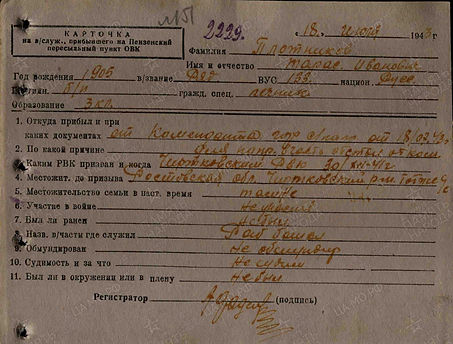 2229. 18. июля 1943 г.
КАРТОЧКА
на в/служ., прибывшего на Пензенский
пересыльный пункт ОВК
Фамилия Плотников
Имя и отчество Тарас Иванович
Год рождения 1905 в/звание Ряд ВУС 133 национ. Русс.
Партиян. б/п гражд. спец. печник
Образование 3 кл.
1. Откуда прибыл и при
каких документах от Коменданта гор от 18.07.43
2. По какой причине для напр.
3. Каким РВК призван и когда Чертковский РВК 30/XII-41 г.
4. Местожит. до призыва Ростовская обл. Чертковский р-н
5. Местожительство семьи в наст. время там же
6. Участие в войне
7. Был ли ранен не был
8. Назв. в/части где служил Раб
9. Обмундирован не обмундир
10. Судимость и за что не судим
11. Был ли в окружении или в плену не был
Регистратор (подпись)